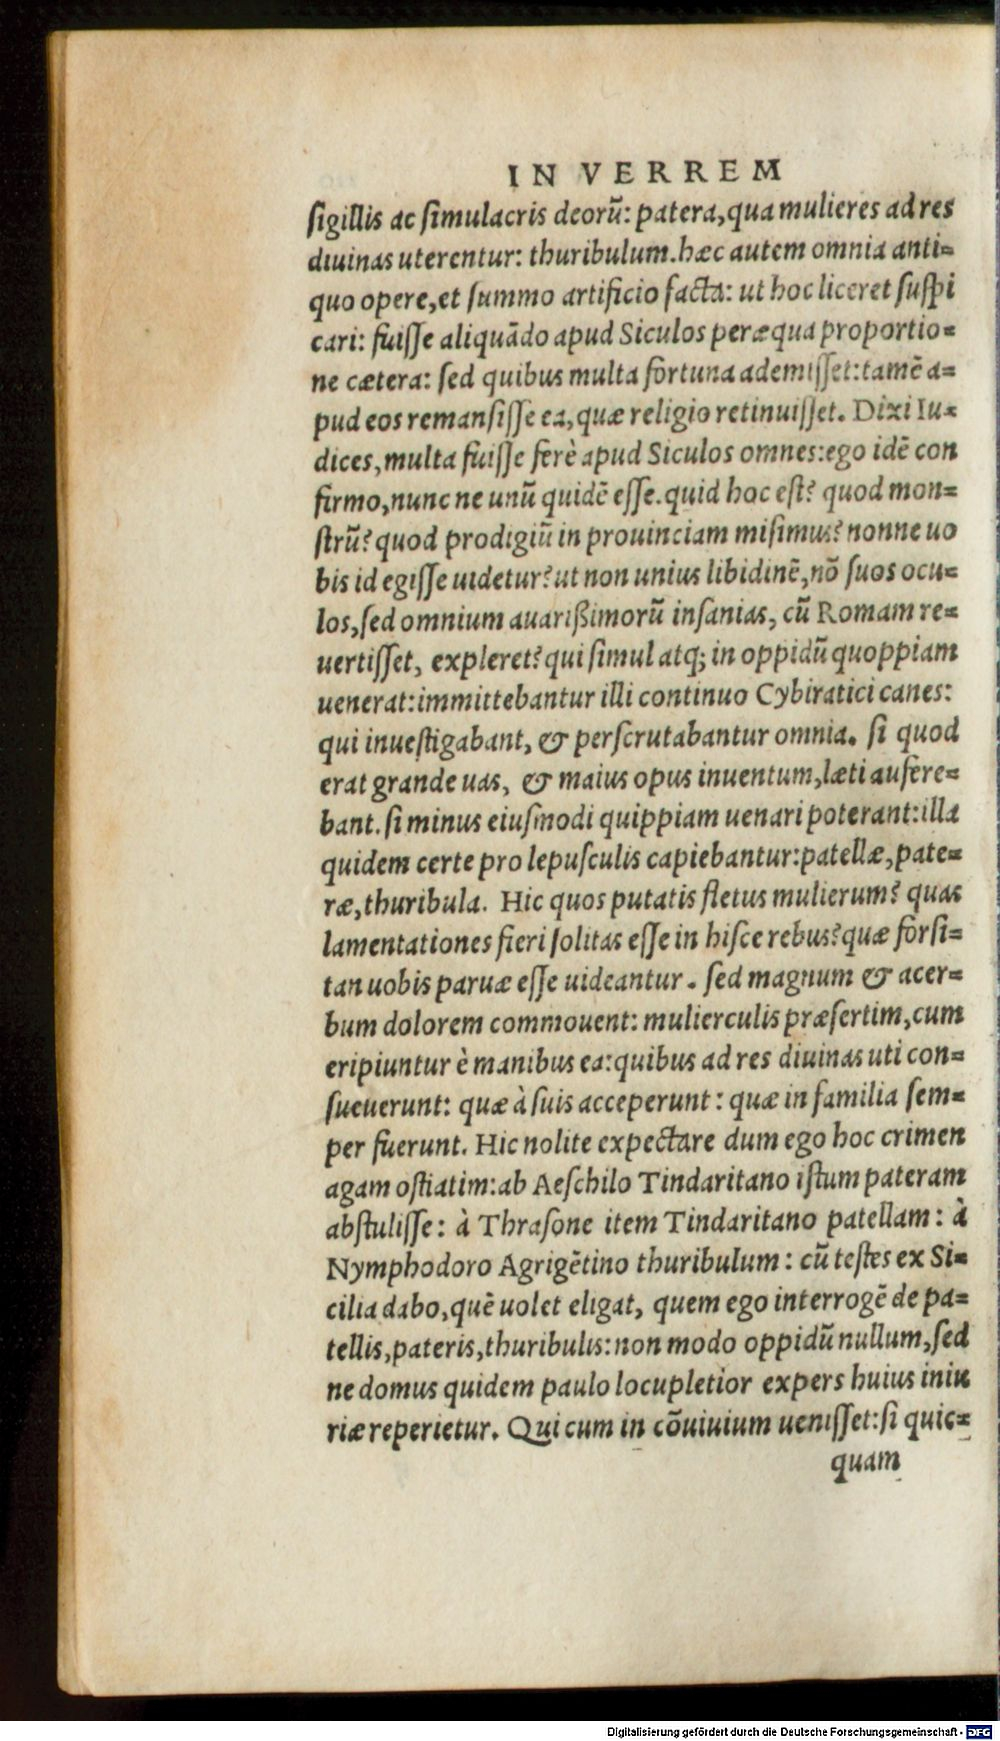 IN VERREM
sigillis ac simulacris deorū: patera, qua mulieres ad res
diuinas uterentur: thuribulum. hæc autem omnia anti=
quo opere, et summo artificio facta: ut hoc liceret suspi
cari: fuisse aliquādo apud Siculos peræqua proportio=
ne cætera: sed quibus multa fortuna ademisset: tamē a=
pud eos remansisse ea, quæ religio retinuisset. Dixi Iu=
dices, multa fuisse ferè apud Siculos omnes: ego idē con
firmo, nunc ne unū quidē esse. quid hoc est? quod mon=
strū? quod prodigiū in prouinciam misimus? nonne uo
bis id egisse uidetur? ut non unius libidinē, nō suos ocu=
los, sed omnium auarißimorū insanias, cū Romam re=
uertisset, expleret? qui simul atq; in oppidū quoppiam
uenerat: immittebantur illi continuo Cybiratici canes:
qui inuestigabant, & perscrutabantur omnia. si quod
erat grande uas, & maius opus inuentum, læti aufere=
bant. si minus eiusmodi quippiam uenari poterant: illa
quidem certe pro lepusculis capiebantur: patellæ, pate=
ræ, thuribula. Hic quos putatis fletus mulierum? quas
lamentationes fieri solitas esse in hisce rebus? quæ forsi=
tan uobis paruæ esse uideantur. sed magnum & acer=
bum dolorem commouent: mulierculis præsertim, cum
eripiuntur è manibus ea: quibus ad res diuinas uti con=
sueuerunt: quæ à suis acceperunt: quæ in familia sem=
per fuerunt. Hic nolite expectare dum ego hoc crimen
agam ostiatim: ab Aeschilo Tindaritano istum pateram
abstulisse: à Thrasone item Tindaritano patellam: à
Nymphodoro Agrigētino thuribulum: cū testes ex Si=
cilia dabo, quē uolet eligat, quem ego interrogē de pa=
tellis, pateris, thuribulis: non modo oppidū nullum, sed
ne domus quidem paulo locupletior expers huius iniu
riæ reperietur. Qui cum in cōuiuium uenisset: si quic=
quam
Digitalisierung gefördert durch die Deutsche Forschungsgemeinschaft - DFG